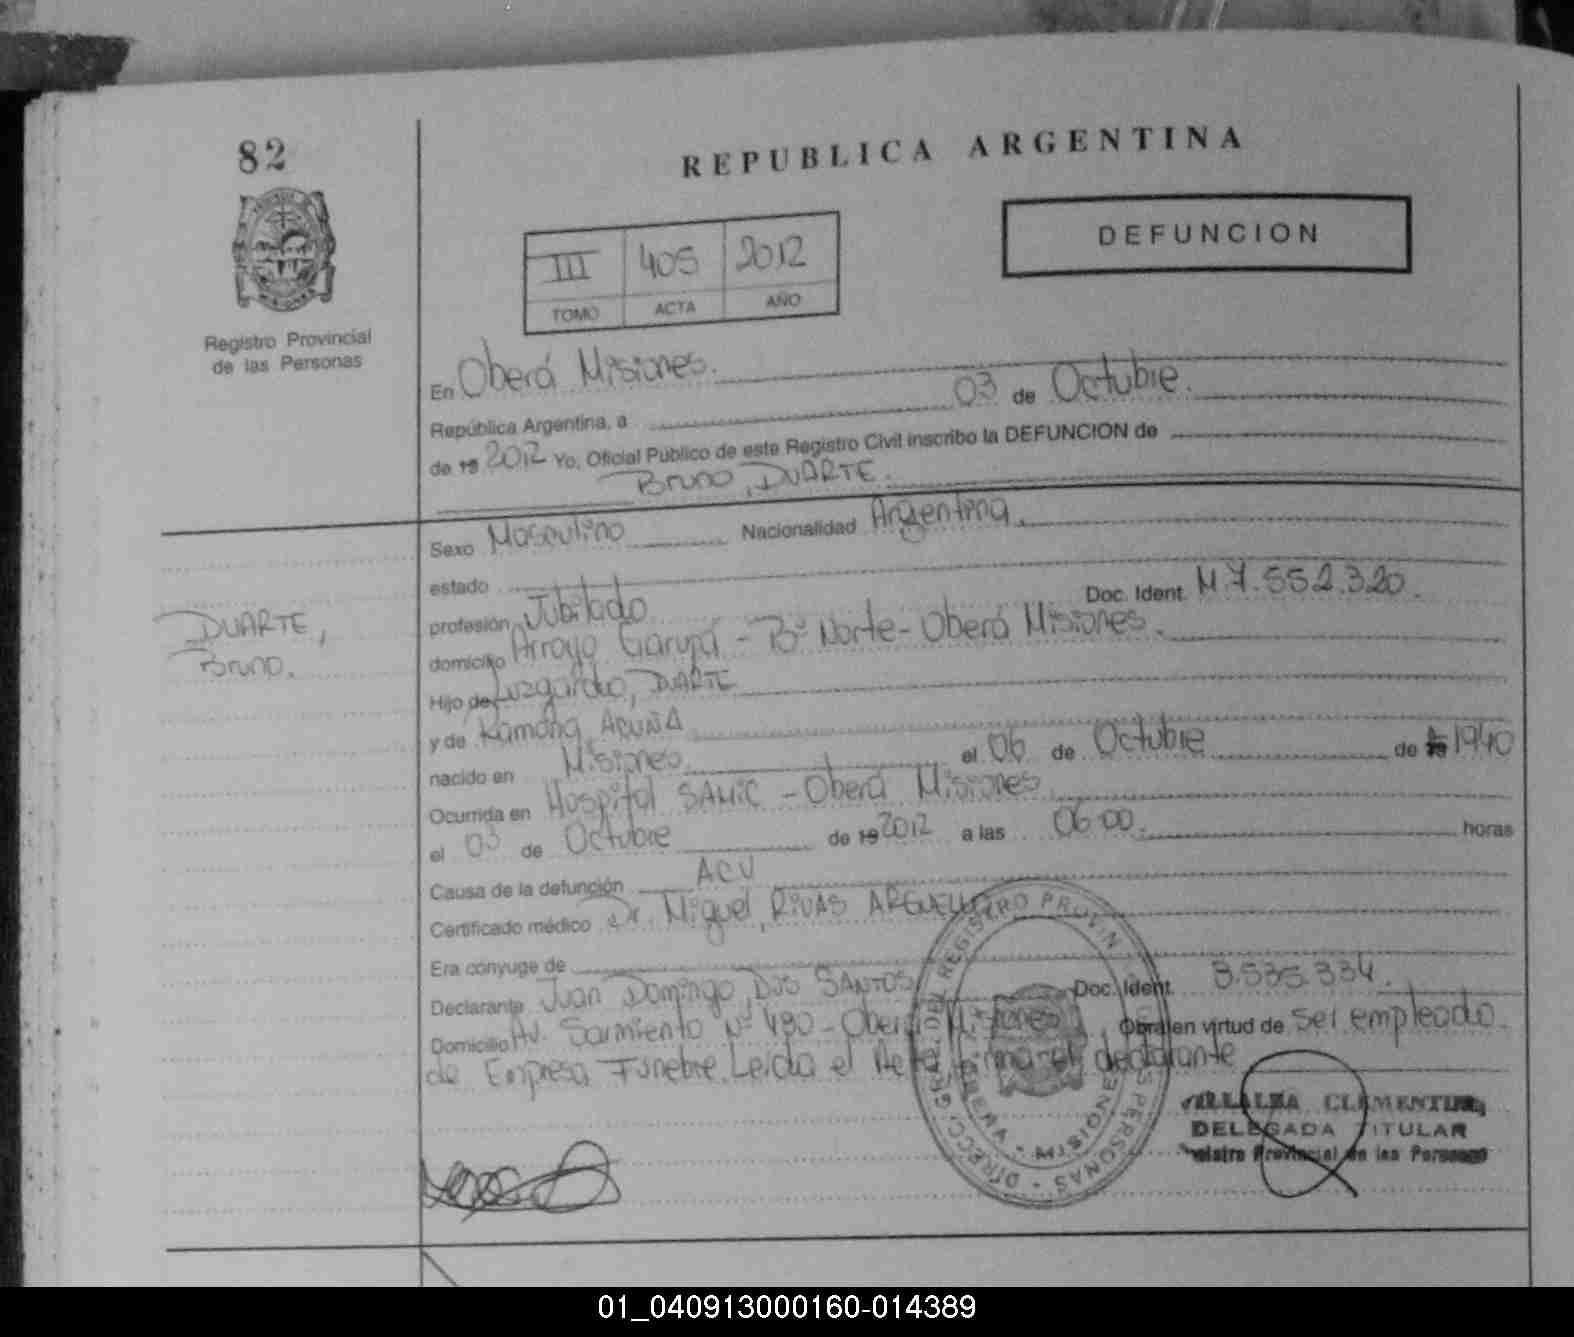 82
REPUBLICA ARGENTINA
DEFUNCION
III 405 2012
TOMO ACTA AÑO
Registro Provincial
de las Personas
En Oberá Misiones.
República Argentina, a 03 de Octubre.
de 19 2012 Yo, Oficial Público de este Registro Civil inscribo la DEFUNCION de
Bruno, DUARTE.
Sexo Masculino Nacionalidad Argentina.
estado
profesión Jubilado Doc. Ident. M 7.552.320.
DUARTE,
Bruno.
domicilio Arroyo Garupá - Bº Norte - Oberá Misiones.
Hijo de DUARTE
y de Ramona, ACUÑA
nacido en Misiones el 06 de Octubre de 19 1940
Ocurrida en Hospital SAMIC - Oberá Misiones
el 03 de Octubre de 19 2012 a las 06:00. horas
Causa de la defunción ACV
Certificado médico Dr. Miguel, RIVAS ARGUELLO
Era cónyuge de
Declarante Juan Domingo, DOS SANTOS Doc. Ident. 8.535.334.
Domicilio Av. Sarmiento Nº 490 - Oberá Misiones. Obra en virtud de ser empleado
de Empresa Fúnebre. Leída el Acta, firma el declarante
DIRECC. GRAL. DEL REGISTRO PROVIN. PERSONAS
MISIONES
VILLALBA CLEMENTINA
DELEGADA TITULAR
Registro Provincial de las Personas
01_040913000160-014389